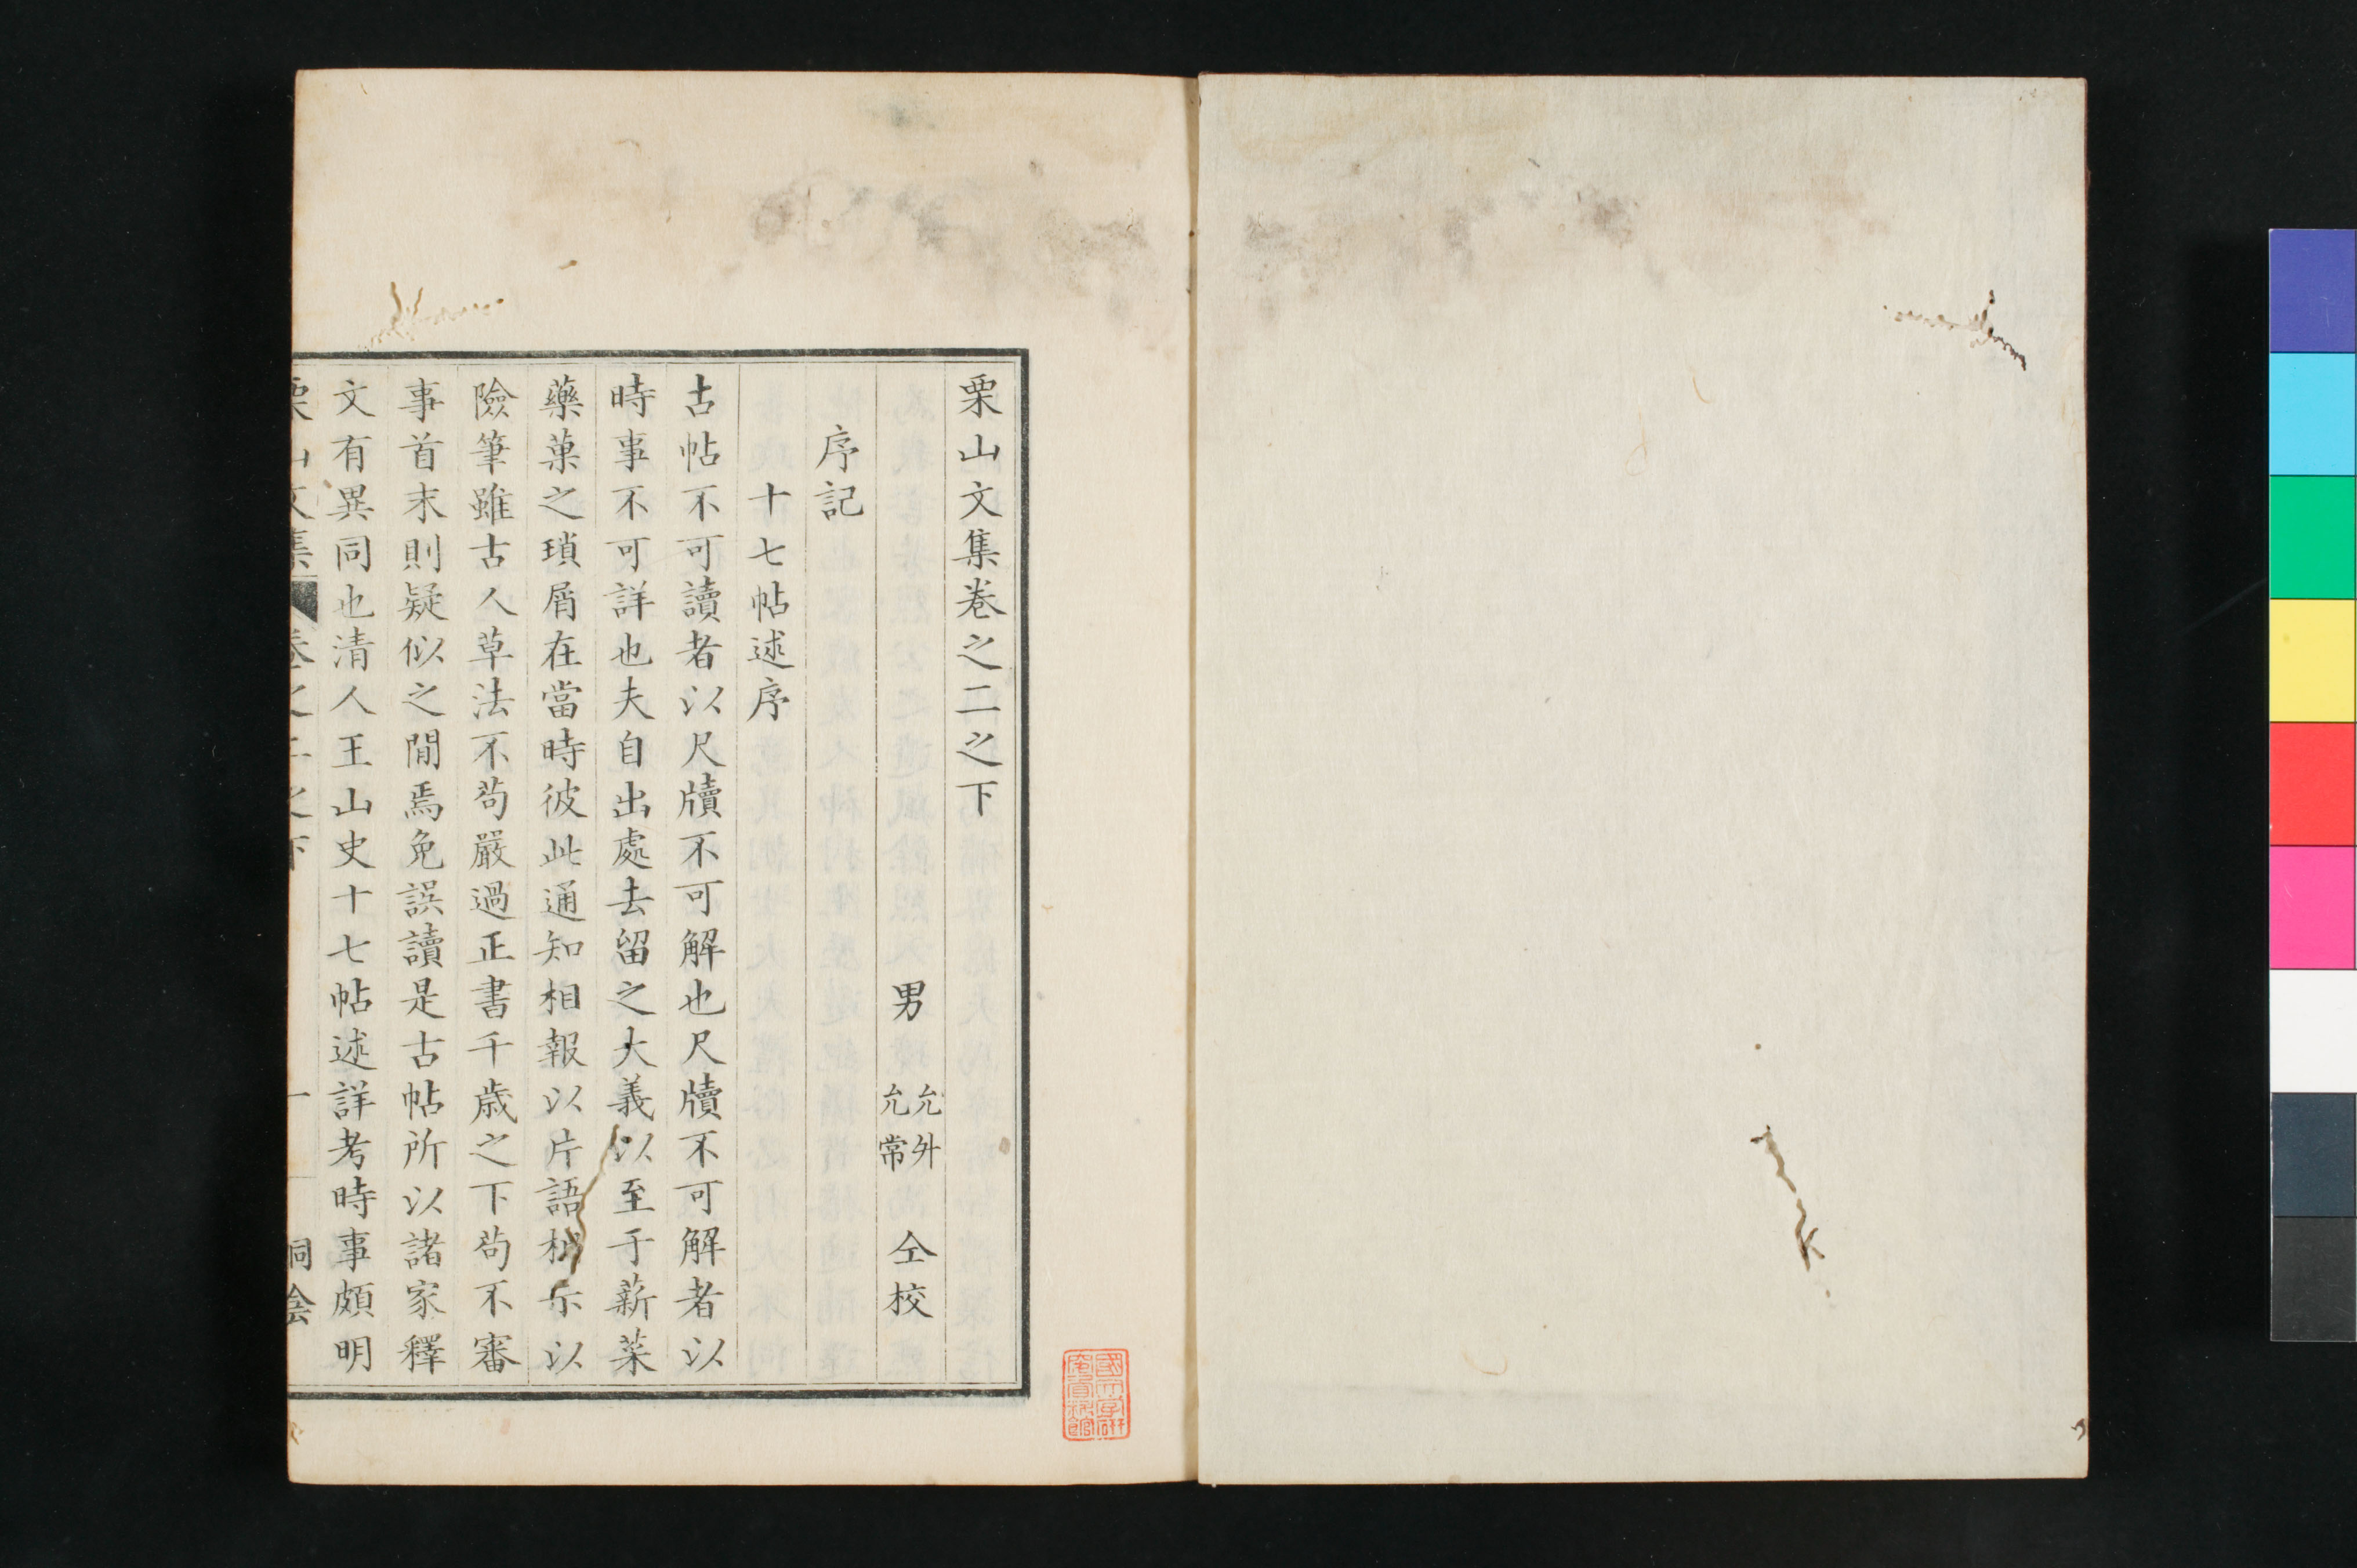 栗山文集卷之二之下
男 允升 允常 仝校
序記
十七帖述序
古帖不可讀者以尺牘不可解也尺牘不可解者以
時事不可詳也夫自出處去留之大義以至于薪菜
藥菓之瑣屑在當時彼此通知相報以片語 示以
險筆雖古人草法不茍嚴過正書千歳之下茍不審
事首末則疑似之閒焉免誤讀是古帖所以諸家釋
文有異同也清人王山史十七帖述詳考時事頗明
栗山文集 卷之二之下 一